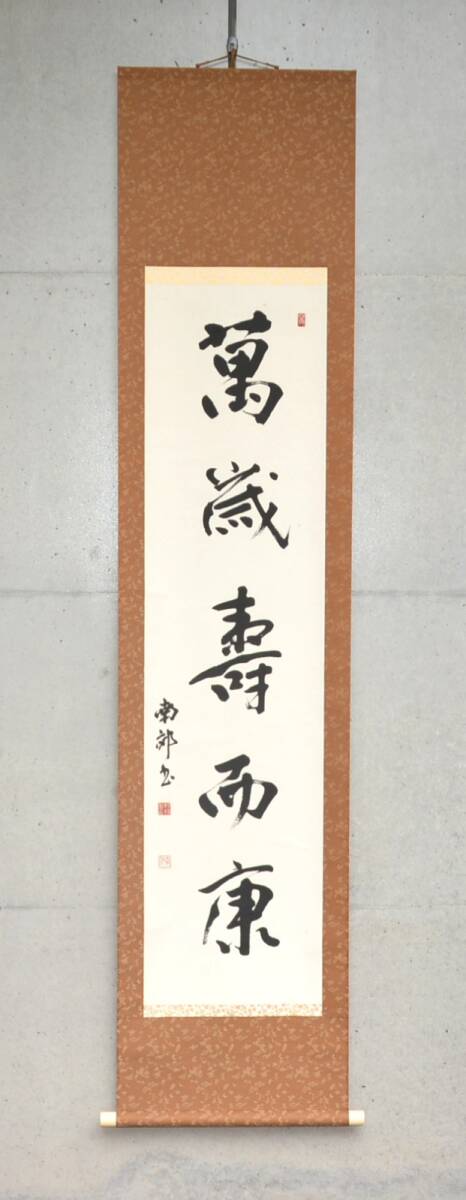 萬歳壽而康
南邨書